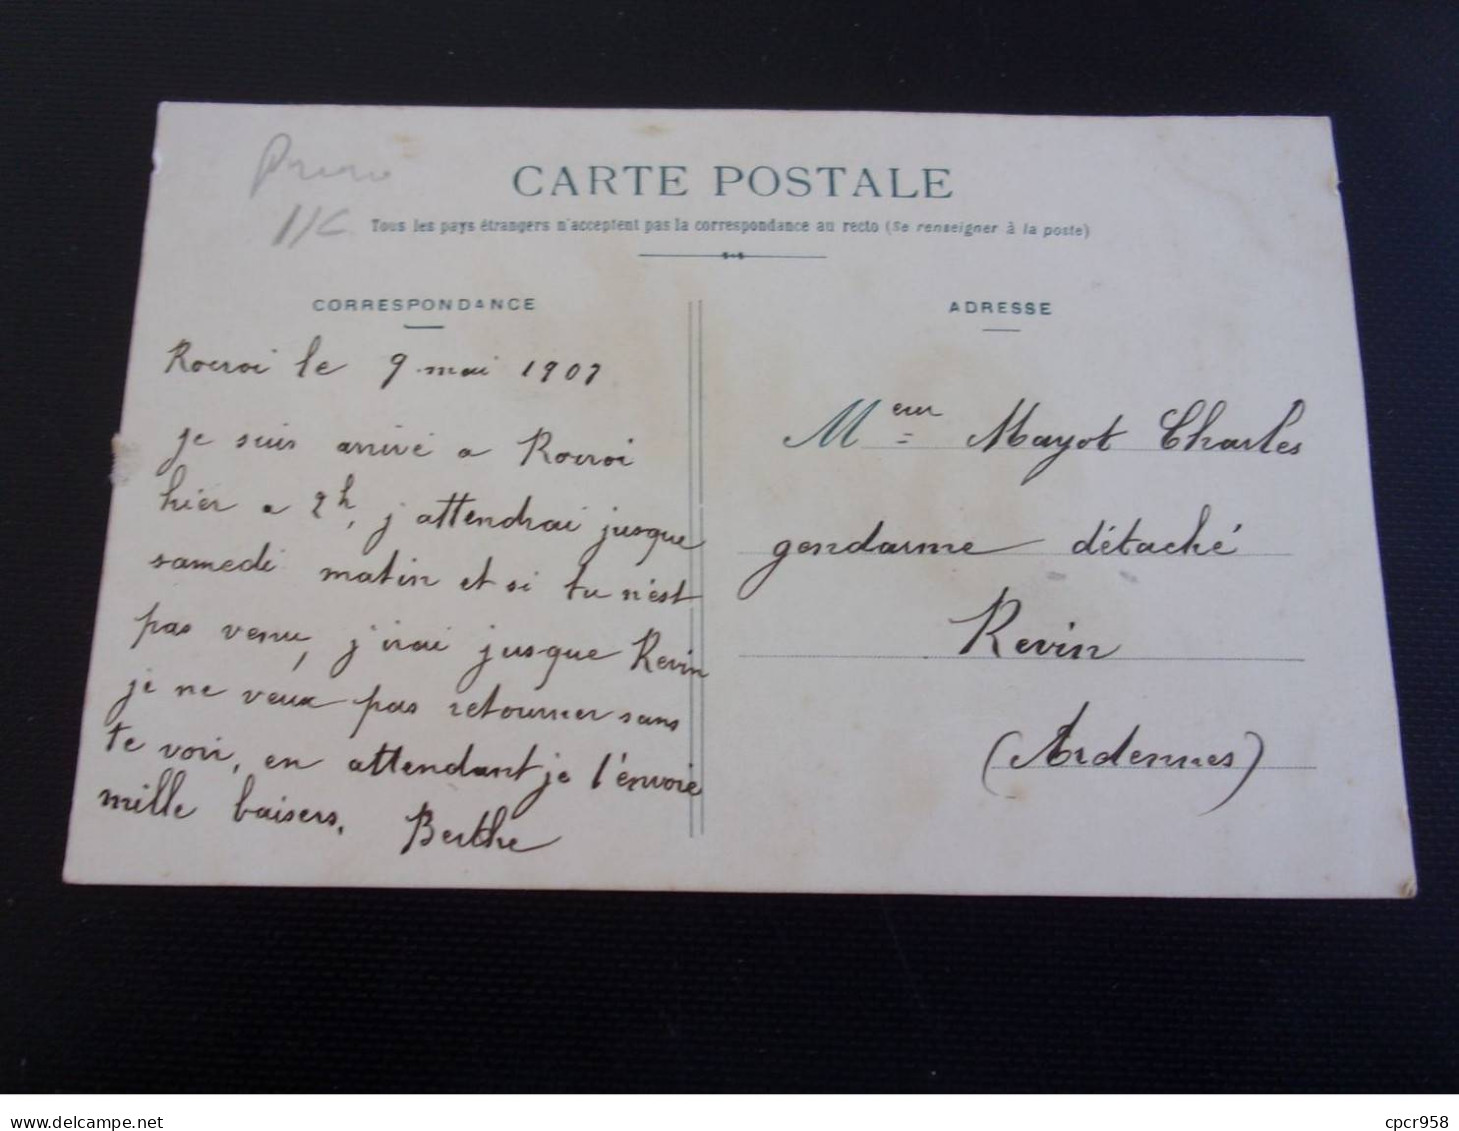 CARTE POSTALE
Tous les pays étrangers n'acceptent pas la correspondance au recto (Se renseigner à la poste)
CORRESPONDANCE
Rocroi le 9 mai 1907
je suis arrivé a Rocroi
hier a 2h, j'attendrai jusque
samedi matin et si tu n'est
pas venu, j'irai jusque Revin
je ne veux pas retourner sans
te voir, en attendant je t'envoie
mille baisers. Berthe
ADRESSE
Meur Mayot Charles
gendarme détaché
Revin
(Ardennes)
cpcr958